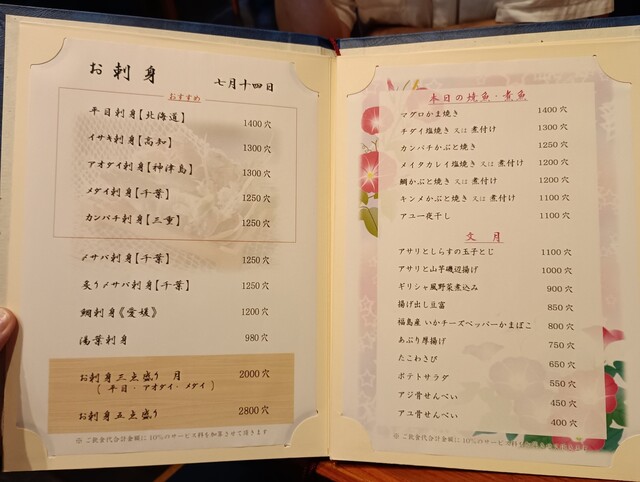 お刺身
七月十四日
おすすめ
平目刺身【北海道】 1400穴
イサキ刺身【高知】 1300穴
アオダイ刺身【神津島】 1300穴
メダイ刺身【千葉】 1250穴
カンパチ刺身【三重】 1250穴
〆サバ刺身【千葉】 1250穴
炙り〆サバ刺身【千葉】 1250穴
鯛刺身《愛媛》 1200穴
湯葉刺身 980穴
お刺身三点盛り 月 2000穴
( 平目・アオダイ・メダイ )
お刺身五点盛り 2800穴
※ご飲食代合計金額に10%のサービス料を加算させて頂きます
本日の焼魚・煮魚
マグロかま焼き 1400穴
チダイ塩焼き 又は 煮付け 1300穴
カンパチかぶと焼き 1250穴
メイタカレイ塩焼き 又は 煮付け 1200穴
鯛かぶと焼き 又は 煮付け 1200穴
キンメかぶと焼き 又は 煮付け 1100穴
アユ一夜干し 1100穴
文月
アサリとしらすの玉子とじ 1100穴
アサリと山芋磯辺揚げ 1000穴
ギリシャ風野菜煮込み 900穴
揚げ出し豆富 850穴
福島産 いかチーズペッパーかまぼこ 800穴
あぶり厚揚げ 750穴
たこわさび 650穴
ポテトサラダ 550穴
アジ骨せんべい 450穴
アユ骨せんべい 400穴
※ご飲食代合計金額に10%のサービス料を加算させて頂きます